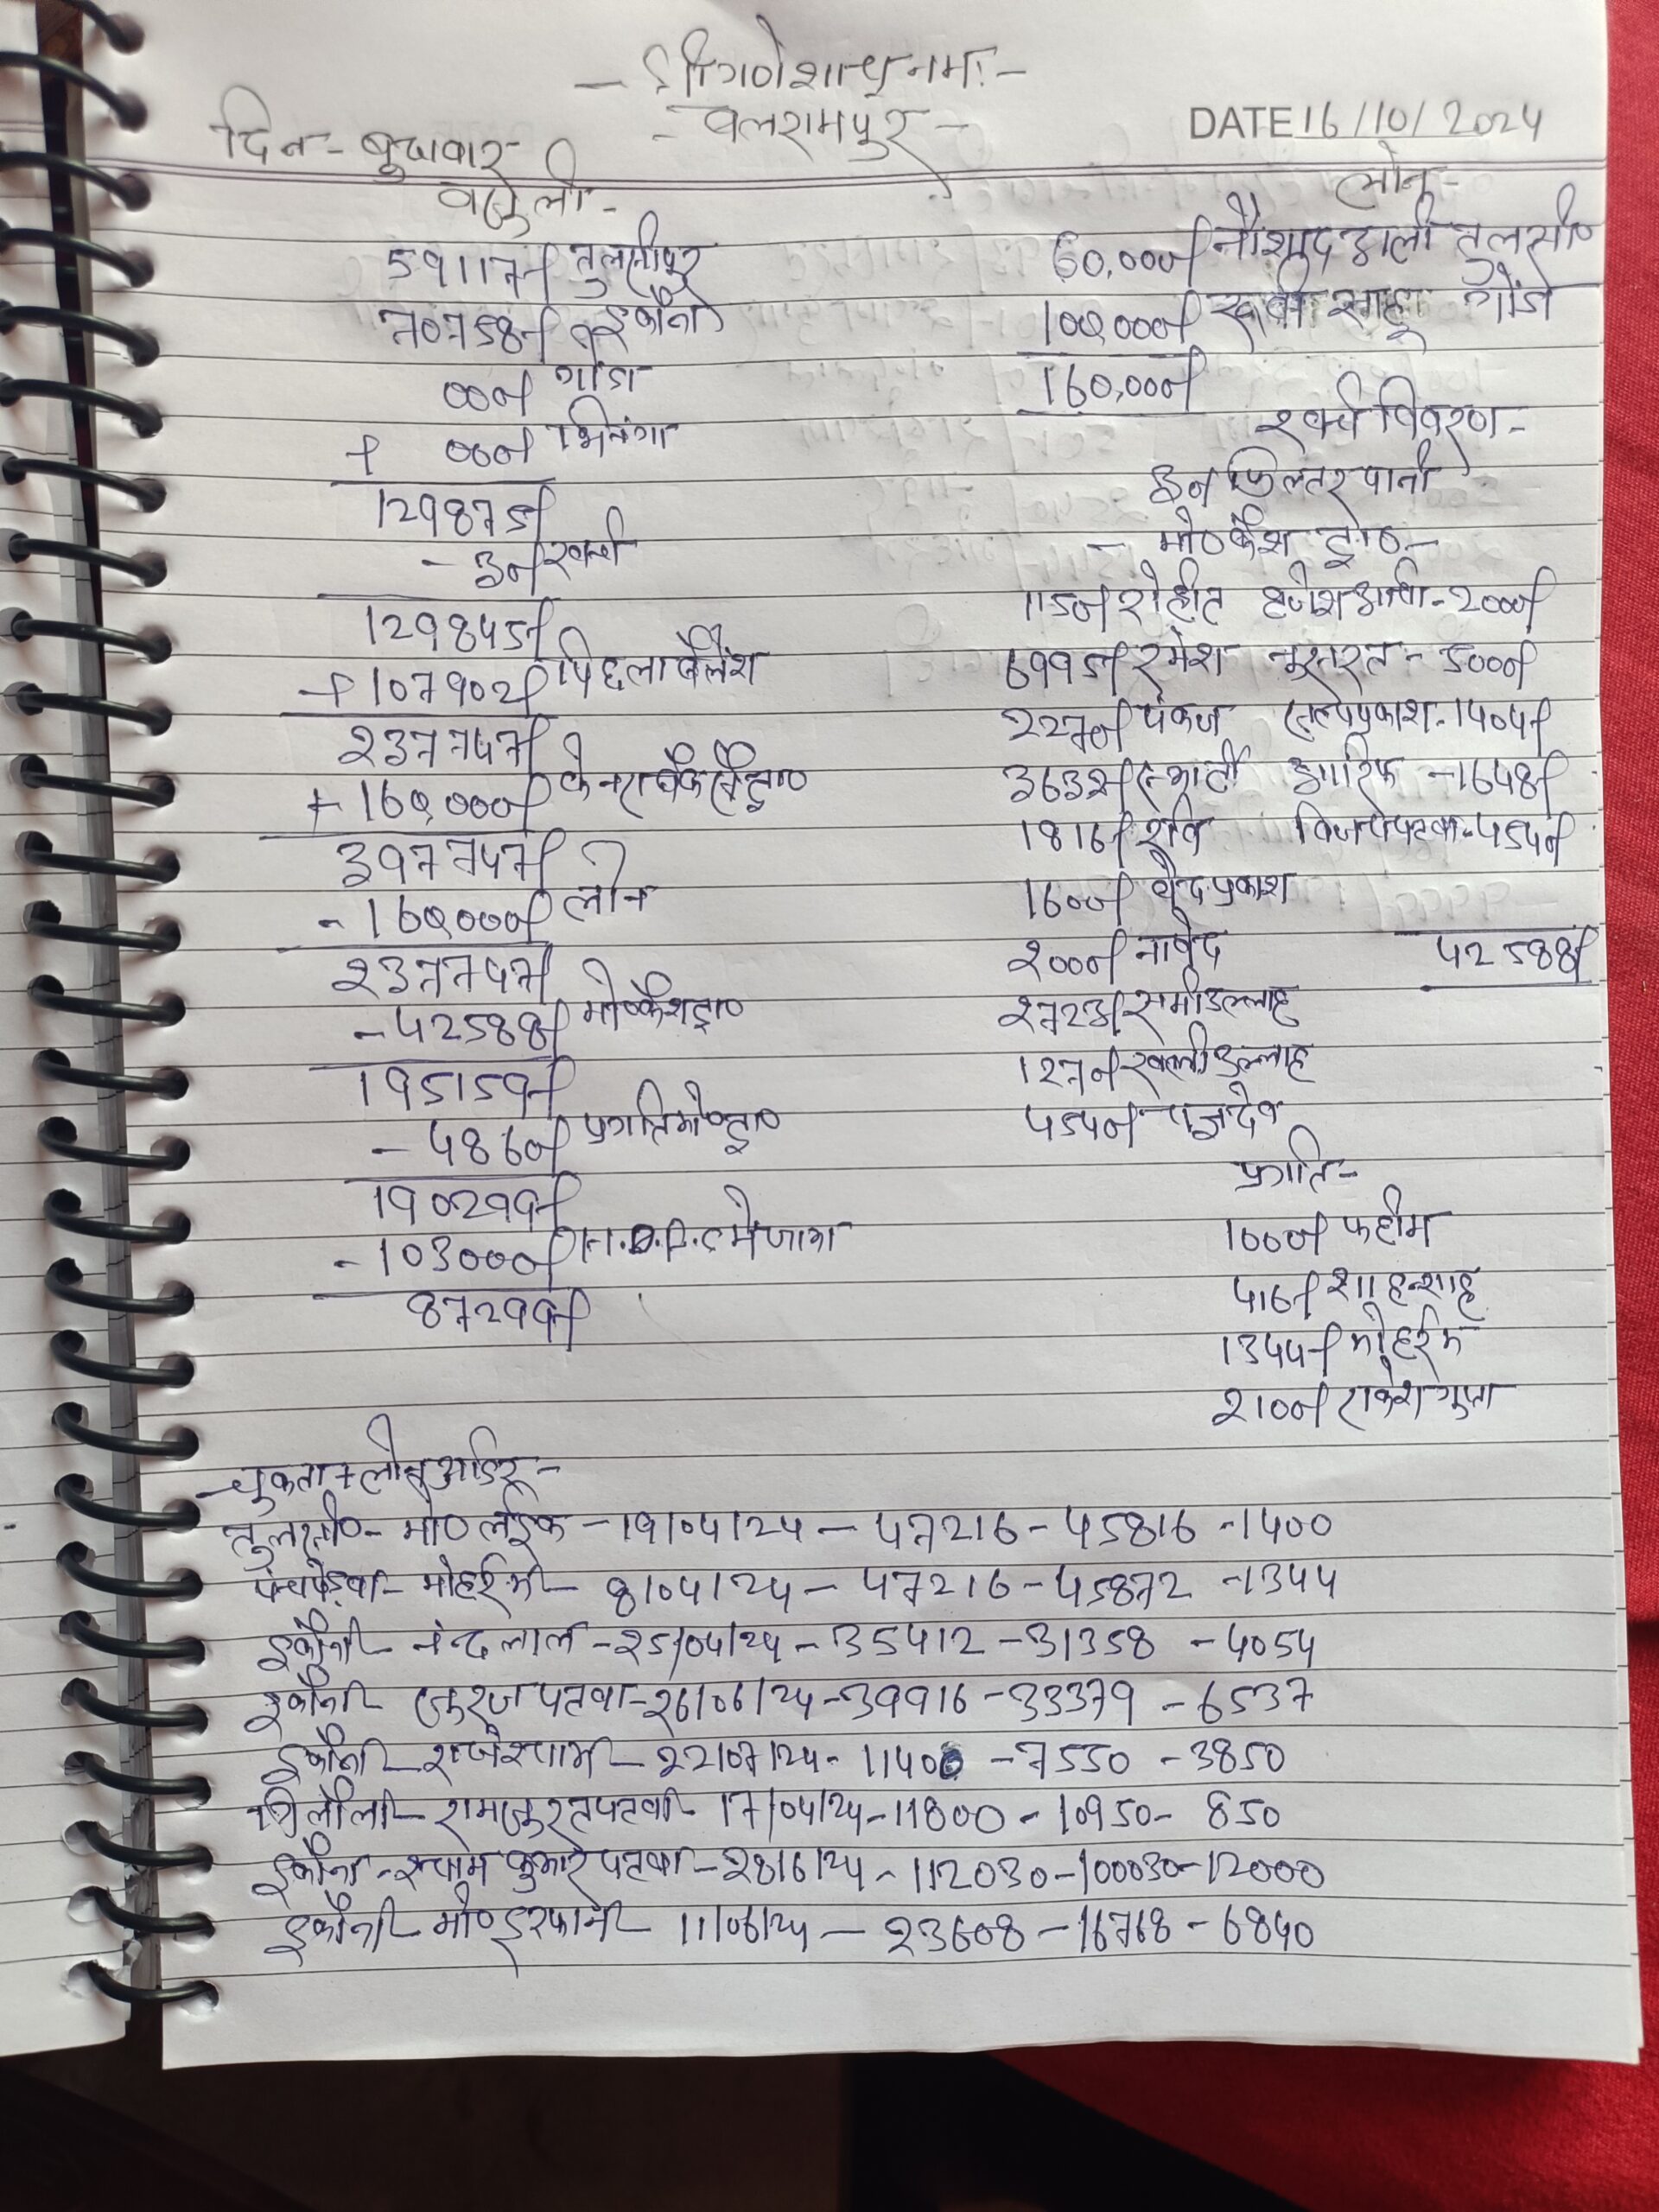 - श्री गणेशाय नमः -
- बलरामपुर -
दिन - बुधवार
DATE 16/10/2024
वसुली -
59117/- तुलसीपुर
70758/- इकौना
00/- गोंडा
+ 00/- भिनगा
129875/-
- 30/- खर्चा
129845/-
+ 107902/- पिछला बैलेंश
237747/-
+ 160,000/- केनरा बैंक
397747/-
- 160000/- लोन
237747/-
- 42588/- मो० कैश ट्रा०
195159/-
- 4860/- प्रगति मो० ट्रा०
190299/-
- 103000/- में जमा
87299/-
लोन -
60,000/- नौशाद अली तुलसी०
100,000/- साहू गोंडा
160,000/-
खर्च विवरण -
30/- फिल्टर पानी
- मो० कैश ट्रा० -
1150/- रोहीत - 2000/-
6995/- रमेश नुसरत - 5000/-
2270/- पंकज सत्यप्रकाश - 1404/-
3632/- आरिफ - 1648/-
1816/- रवि विजय पटवा - 4540/-
1600/- चन्द्रप्रकाश
2000/- जावेद
42588/-
2723/- समीउल्लाह
1270/- खलीउल्लाह
4540/-
प्रगति -
1000/- फहीम
416/- शाहन्शाह
1344/- मोहर्रम
2100/- राकेश गुप्ता
- चुकता + लोन आर्डर -
तुलसी० - मो० लईक - 19/04/24 - 47216 - 45816 - 1400
पचपेड़वा - मोहर्रम - 8/04/24 - 47216 - 45872 - 1344
इकौना - नन्दलाल - 25/04/24 - 35412 - 31358 - 4054
इकौना - सूरज पटवा - 26/06/24 - 39916 - 33379 - 6537
इकौना - राजेश्याम - 22/07/24 - 11400 - 7550 - 3850
रामसुरत पटवा - 17/04/24 - 11800 - 10950 - 850
इकौना - श्याम कुमार पटवा - 28/6/24 - 112030 - 100030 - 12000
इकौना - मो० इरफान - 11/06/24 - 23608 - 16768 - 6840